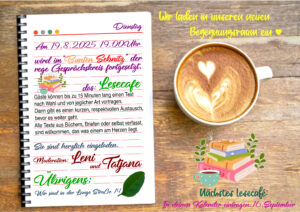 Dienstag
Am 19.8.2025 19.00Uhr
wird im "Bunten Sebnitz" der
rege Gesprächskreis fortgesetzt.
das Lesecafe
Gäste können bis zu 15 Minuten lang einen Text
nach Wahl und von jeglicher Art vortragen.
Dann gibt es einen kurzen, respektvollen Austausch,
bevor es weiter geht.
Alle Texte aus Büchern, Briefen oder selbst verfasst,
sind willkommen, das was einem am Herzen liegt.
Sie sind herzlich eingeladen.
Moderation: Leni und Tatjana
Übrigens:
Wir sind in der Lange Straße
Wir laden in unseren neuen
Begegnungsraum ein ♥
Nächstes Lesecafe:
In deinen Kalender eintragen: 16. September